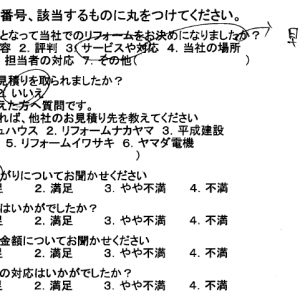 番号、該当するものに丸をつけてください。
となって当社でのリフォームをお決めになりましたか?
容 2. 評判 3. サービスや対応 4. 当社の場所
担当者の対応 7. その他( )
見積りを取られましたか?
いいえ
えた方へ質問です。
れば、他社のお見積り先を教えてください
ュハウス 2. リフォームナカヤマ 3. 平成建設
5. リフォームイワサキ 6. ヤマダ電機
)
がりについてお聞かせください
足 2. 満足 3. やや不満 4. 不満
はいかがでしたか?
足 2. 満足 3. やや不満 4. 不満
金額についてお聞かせください
足 2. 満足 3. やや不満 4. 不満
の対応はいかがでしたか?
足 2. 満足 3. やや不満 4. 不満